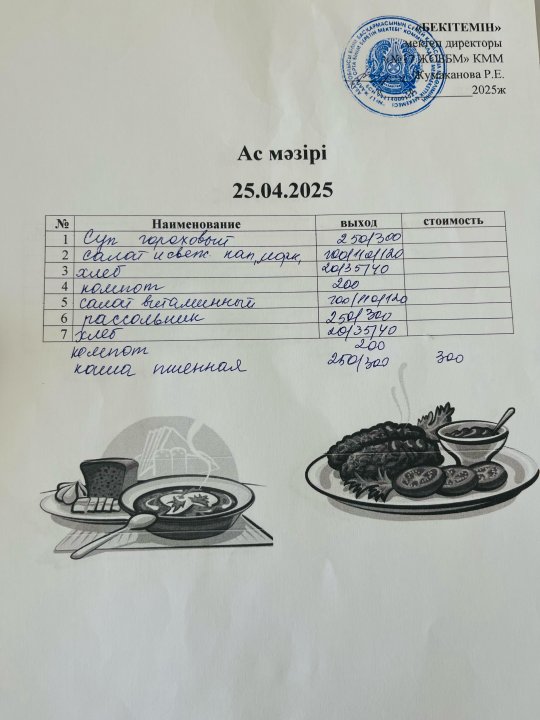 «БЕКІТЕМІН»
мектеп директоры
«№17 ЖОББМ» КММ
Жумаканова Р.Е.
2025ж
Ас мәзірі
25.04.2025
№ Наименование выход стоимость
1 Суп гороховый 250/300
2 салат и свеж кап, морк, 100/110/120
3 хлеб 20/35/40
4 компот 200
5 салат витаминный 100/110/120
6 рассольник 250/300
7 хлеб 20/35/40
компот 200
каша пшенная 250/300 300